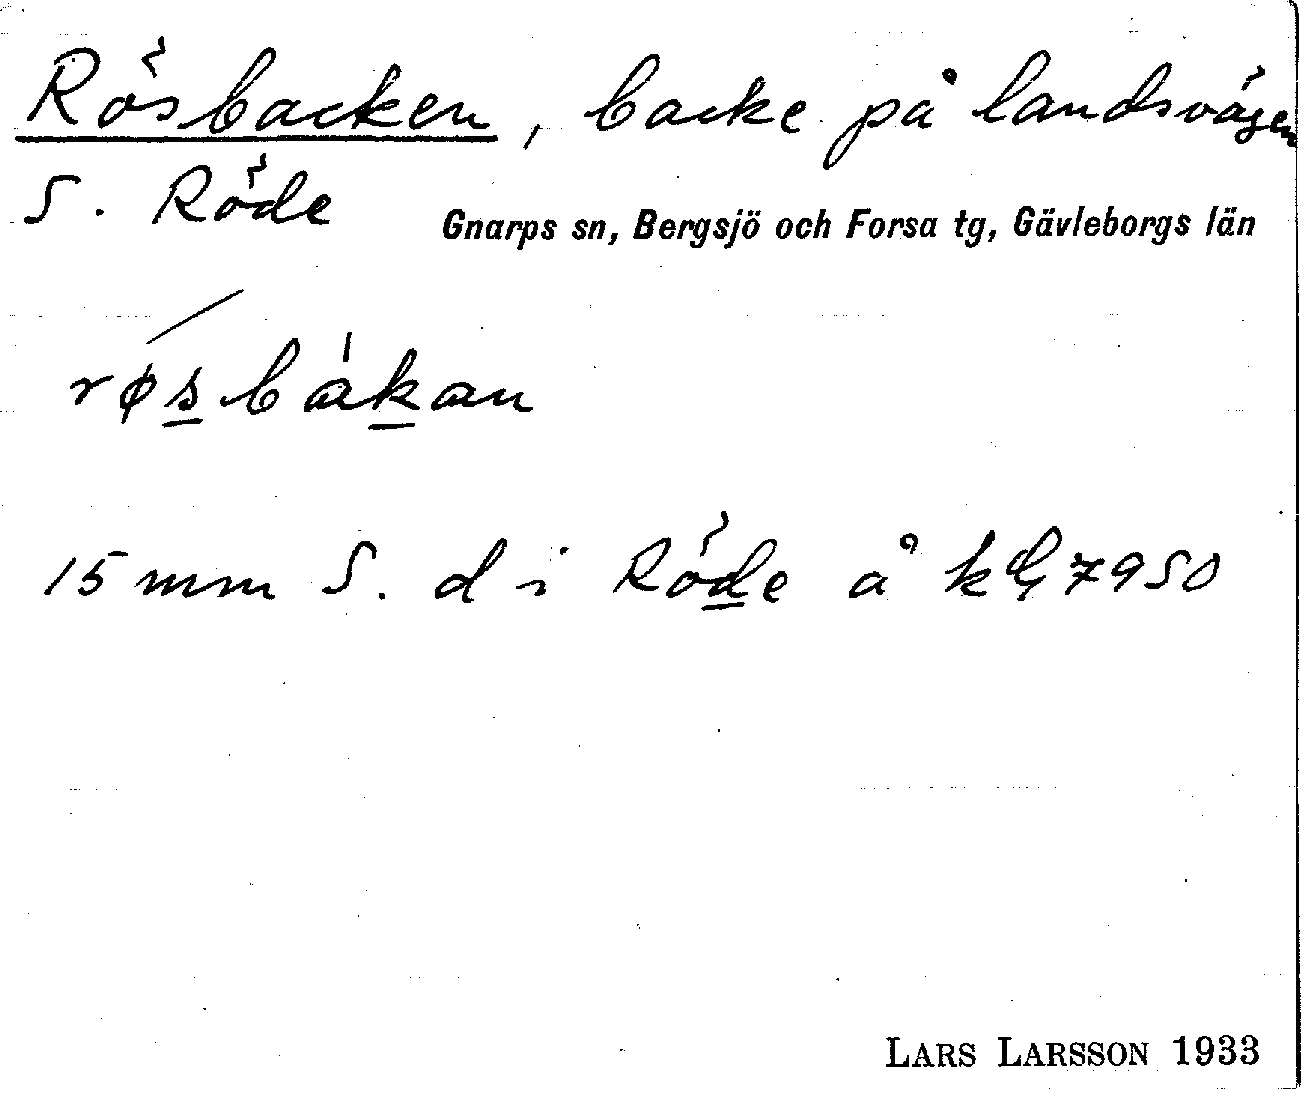 Rösbacken, backe på landsvägen
S. Röde
Gnarps sn, Bergsjö och Forsa tg, Gävleborgs län
røsbákan
15 mm S. d i Röde å kG 7950
LARS LARSSON 1933